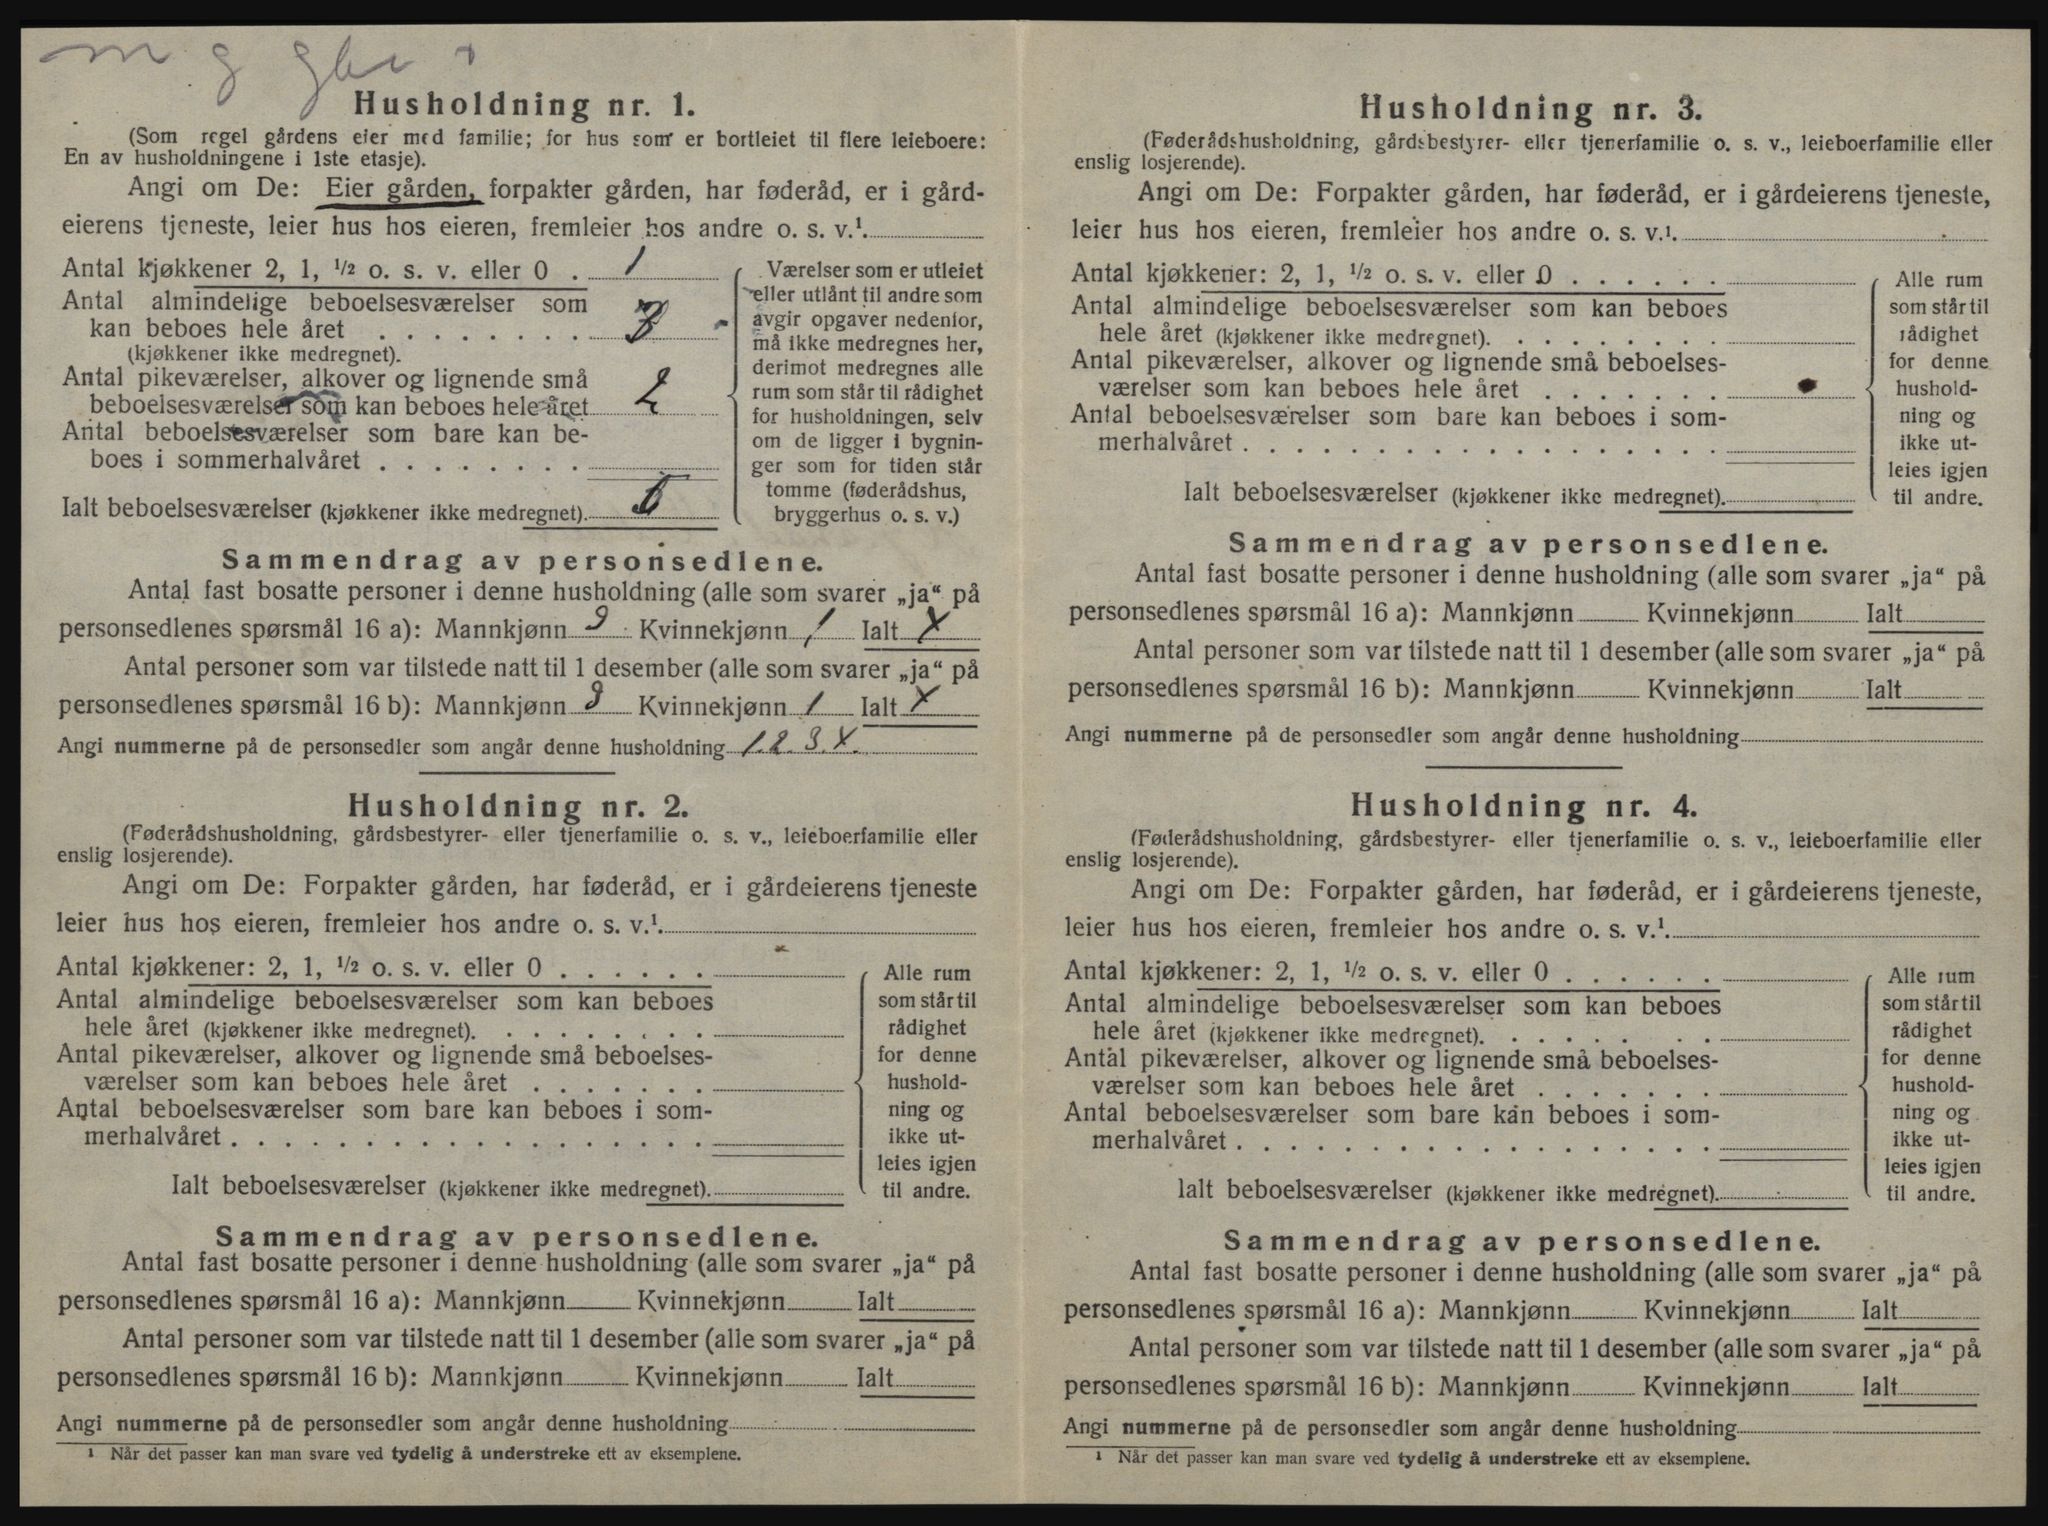 Husholdning nr. 1.
(Som regel gårdens eier med familie; for hus som er bortleiet til flere leieboere:
En av husholdningene i 1ste etasje).
Angi om De: Eier gården, forpakter gården, har føderåd, er i gård-
eierens tjeneste, leier hus hos eieren, fremleier hos andre o. s. v.¹.
Antal kjøkkener 2, 1, ½ o. s. v. eller 0 . 1
Antal almindelige beboelsesværelser som
kan beboes hele året . . . . . . . . 3
(kjøkkener ikke medregnet).
Antal pikeværelser, alkover og lignende små
beboelsesværelser som kan beboes hele året 2
Antal beboelsesværelser som bare kan be-
boes i sommerhalvåret . . . . . . . .
Ialt beboelsesværelser (kjøkkener ikke medregnet). 5
Værelser som er utleiet
eller utlånt til andre som
avgir opgaver nedenfor,
må ikke medregnes her,
derimot medregnes alle
rum som står til rådighet
for husholdningen, selv
om de ligger i bygnin-
ger som for tiden står
tomme (føderådshus,
bryggerhus o. s. v.)
Sammendrag av personsedlene.
Antal fast bosatte personer i denne husholdning (alle som svarer „ja“ på
personsedlenes spørsmål 16 a): Mannkjønn 3 Kvinnekjønn 1 Ialt 4
Antal personer som var tilstede natt til 1 desember (alle som svarer „ja“ på
personsedlenes spørsmål 16 b): Mannkjønn 3 Kvinnekjønn 1 Ialt 4
Angi nummerne på de personsedler som angår denne husholdning 1.2.3.4.
Husholdning nr. 2.
(Føderådshusholdning, gårdsbestyrer- eller tjenerfamilie o. s. v., leieboerfamilie eller
enslig losjerende).
Angi om De: Forpakter gården, har føderåd, er i gårdeierens tjeneste
leier hus hos eieren, fremleier hos andre o. s. v.¹.
Antal kjøkkener: 2, 1, ½ o. s. v. eller 0 . . . . . .
Antal almindelige beboelsesværelser som kan beboes
hele året (kjøkkener ikke medregnet). . . . . . . . .
Antal pikeværelser, alkover og lignende små beboelses-
værelser som kan beboes hele året . . . . . . .
Antal beboelsesværelser som bare kan beboes i som-
merhalvåret . . . . . . . . . . . . . . . . . .
Ialt beboelsesværelser (kjøkkener ikke medregnet).
Alle rum
som står til
rådighet
for denne
hushold-
ning og
ikke ut-
leies igjen
til andre.
Sammendrag av personsedlene.
Antal fast bosatte personer i denne husholdning (alle som svarer „ja“ på
personsedlenes spørsmål 16 a): Mannkjønn Kvinnekjønn Ialt
Antal personer som var tilstede natt til 1 desember (alle som svarer „ja“ på
personsedlenes spørsmål 16 b): Mannkjønn Kvinnekjønn Ialt
Angi nummerne på de personsedler som angår denne husholdning
¹ Når det passer kan man svare ved tydelig å understreke ett av eksemplene.
Husholdning nr. 3.
(Føderådshusholdning, gårdsbestyrer- eller tjenerfamilie o. s. v., leieboerfamilie eller
enslig losjerende).
Angi om De: Forpakter gården, har føderåd, er i gårdeierens tjeneste,
leier hus hos eieren, fremleier hos andre o. s. v.¹.
Antal kjøkkener: 2, 1, ½ o. s. v. eller 0 . . . . . .
Antal almindelige beboelsesværelser som kan beboes
hele året (kjøkkener ikke medregnet). . . . . . . . .
Antal pikeværelser, alkover og lignende små beboelses-
værelser som kan beboes hele året . . . . . . .
Antal beboelsesværelser som bare kan beboes i som-
merhalvåret . . . . . . . . . . . . . . . . . .
Ialt beboelsesværelser (kjøkkener ikke medregnet).
Alle rum
som står til
rådighet
for denne
hushold-
ning og
ikke ut-
leies igjen
til andre.
Sammendrag av personsedlene.
Antal fast bosatte personer i denne husholdning (alle som svarer „ja“ på
personsedlenes spørsmål 16 a): Mannkjønn Kvinnekjønn Ialt
Antal personer som var tilstede natt til 1 desember (alle som svarer „ja“ på
personsedlenes spørsmål 16 b): Mannkjønn Kvinnekjønn Ialt
Angi nummerne på de personsedler som angår denne husholdning
Husholdning nr. 4.
(Føderådshusholdning, gårdsbestyrer- eller tjenerfamilie o. s. v., leieboerfamilie eller
enslig losjerende).
Angi om De: Forpakter gården, har føderåd, er i gårdeierens tjeneste,
leier hus hos eieren, fremleier hos andre o. s. v.¹.
Antal kjøkkener: 2, 1, ½ o. s. v. eller 0 . . . . . .
Antal almindelige beboelsesværelser som kan beboes
hele året (kjøkkener ikke medregnet). . . . . . . . .
Antal pikeværelser, alkover og lignende små beboelses-
værelser som kan beboes hele året . . . . . . .
Antal beboelsesværelser som bare kan beboes i som-
merhalvåret . . . . . . . . . . . . . . . . . .
Ialt beboelsesværelser (kjøkkener ikke medregnet).
Alle rum
som står til
rådighet
for denne
hushold-
ning og
ikke ut-
leies igjen
til andre.
Sammendrag av personsedlene.
Antal fast bosatte personer i denne husholdning (alle som svarer „ja“ på
personsedlenes spørsmål 16 a): Mannkjønn Kvinnekjønn Ialt
Antal personer som var tilstede natt til 1 desember (alle som svarer „ja“ på
personsedlenes spørsmål 16 b): Mannkjønn Kvinnekjønn Ialt
Angi nummerne på de personsedler som angår denne husholdning
¹ Når det passer kan man svare ved tydelig å understreke ett av eksemplene.